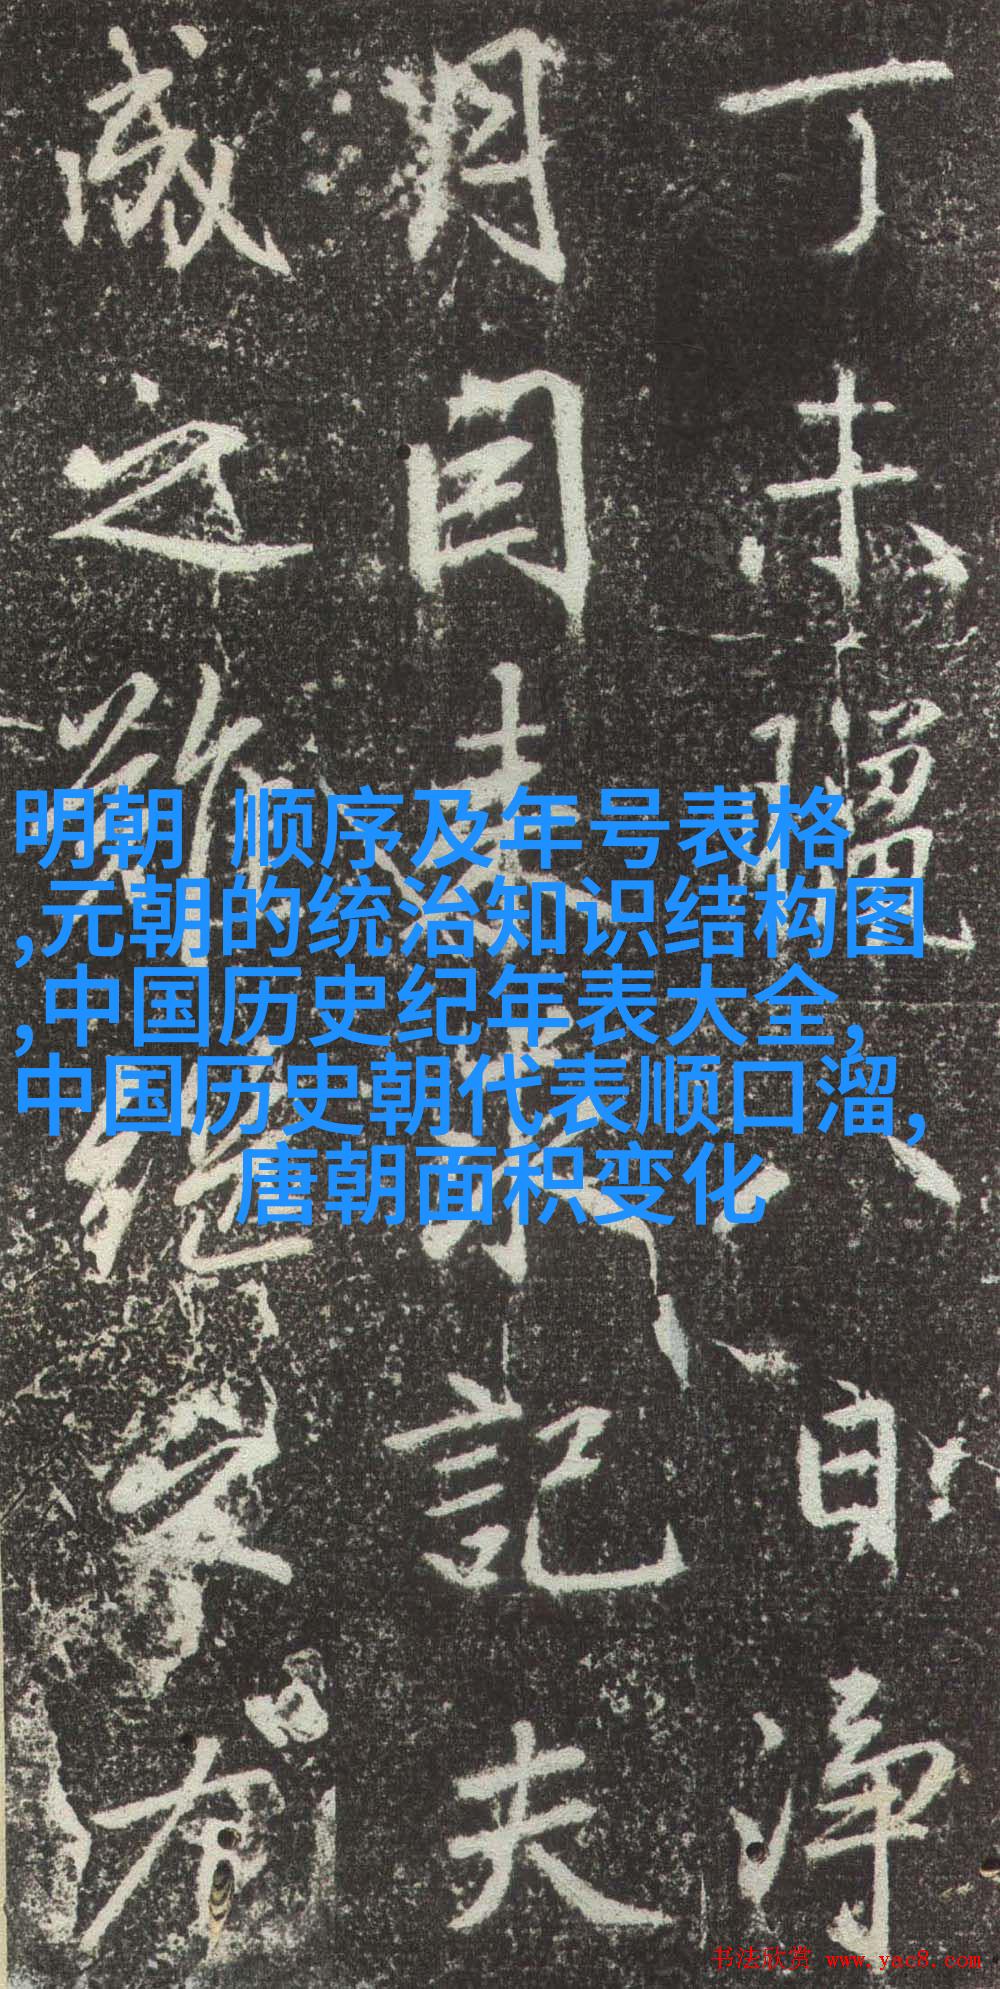 丁未八日淨
月目記夫
成之難
明朝 顺序及年号表格
,元朝的统治知识结构图
,中国历史纪年表大全,
中国历史朝代表顺口溜,
唐朝面积变化
书法欣赏 www.yac8.com